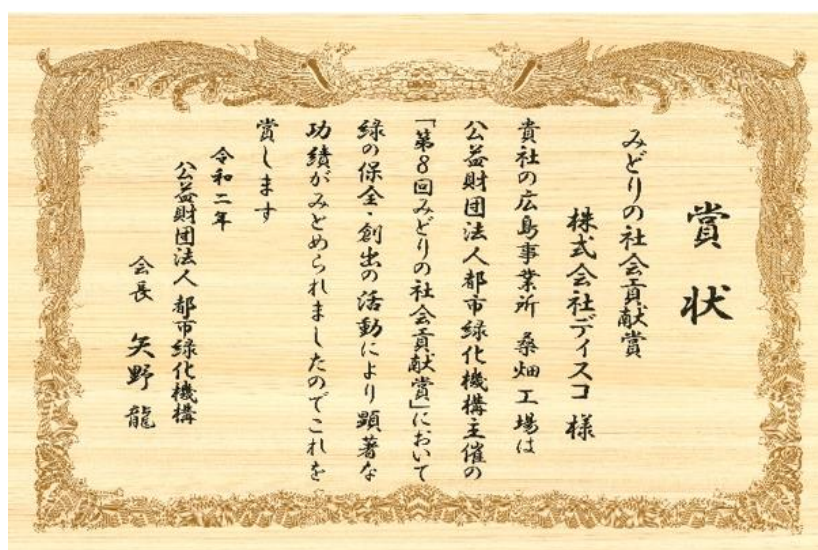 賞状
みどりの社会貢献賞
株式会社ディスコ 様
貴社の広島事業所 桑畑工場は
公益財団法人都市緑化機構主催の
「第8回みどりの社会貢献賞」において
緑の保全・創出の活動により顕著な
功績がみとめられましたのでこれを
賞します
令和二年
公益財団法人都市緑化機構
会長 矢野龍